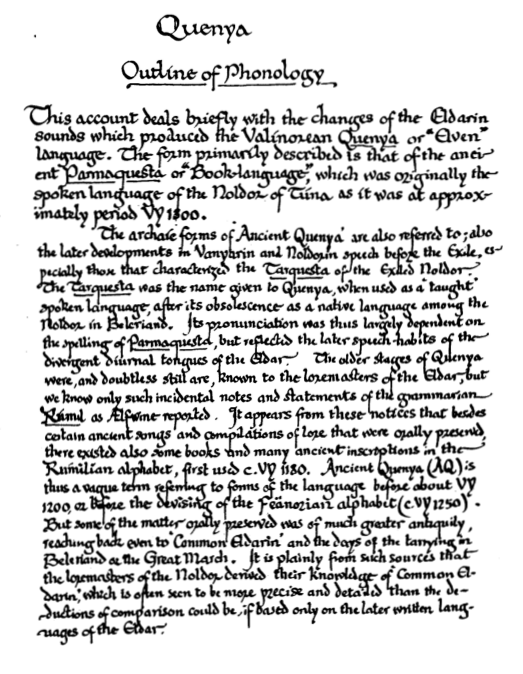 Quenya
Outline of Phonology
This account deals briefly with the changes of the Eldarin
sounds which produced the Valinorean Quenya or "Elven"
language. The form primarily described is that of the anci-
ent Parmaquesta or "Book-language", which was originally the
spoken language of the Noldor of Túna as it was at approx-
imately period VY 1300.
The archaic forms of 'Ancient Quenya' are also referred to; also
the later developments in Vanyarin and Noldorin speech before the Exile, es-
pecially those that characterized the Tarquesta of the Exiled Noldor.
The Tarquesta was the name given to Quenya, when used as a "taught"
spoken language, after its obsolescence as a native language among the
Noldor in Beleriand. Its pronunciation was thus largely dependent on
the spelling of Parmaquesta, but reflected the later speech-habits of the
divergent diurnal tongues of the Eldar. The older stages of Quenya
were, and doubtless still are, known to the loremasters of the Eldar, but
we know only such incidental notes and statements of the grammarian
Rúmil as Ælfwine reported. It appears from these notices that besides
certain ancient songs and compilations of lore that were orally preserved,
there existed also some books and many ancient inscriptions in the
Rúmilian alphabet, first used c. VY 1180. Ancient Quenya (AQ) is
thus a vague term referring to forms of the language before about VY
1200, or before the devising of the Feänorian alphabet (c. VY 1250).
But some of the matter orally preserved was of much greater antiquity,
reaching back even to 'Common Eldarin' and the days of the tarrying in
Beleriand or the Great March. It is plainly from such sources that
the loremasters of the Noldor derived their knowledge of 'Common El-
darin', which is often seen to be more precise and detailed than the de-
ductions of comparison could be, if based only on the later written lang-
uages of the Eldar.